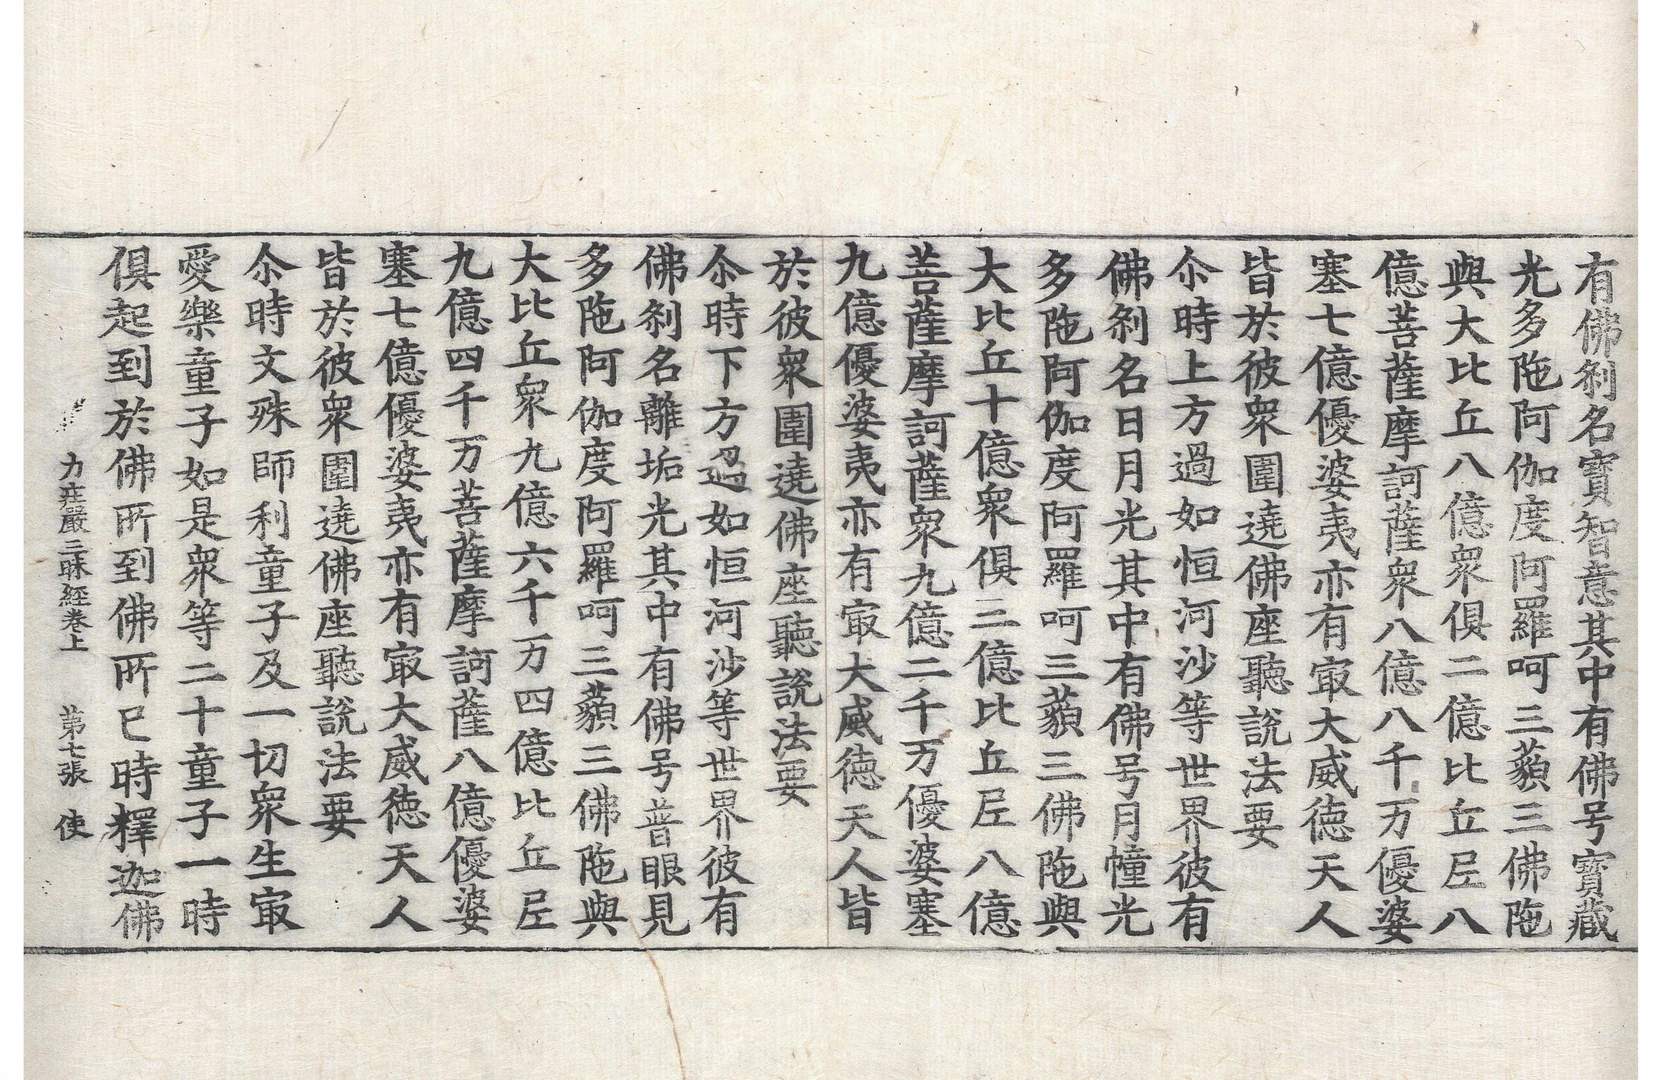 有佛刹名寶智意其中有佛号寶藏
光多陁阿伽度阿羅呵三藐三佛陁
與大比丘八億衆俱二億比丘尼八
億菩薩摩訶薩衆八億八千万優婆
塞七億優婆夷亦有㝡大威德天人
皆於彼衆圍遶佛座聽說法要
尒時上方過如恒河沙等世界彼有
佛刹名日月光其中有佛号月幢光
多陁阿伽度阿羅呵三藐三佛陁與
大比丘十億衆俱三億比丘尼八億
菩薩摩訶薩衆九億二千万優婆塞
九億優婆夷亦有㝡大威德天人皆
於彼衆圍遶佛座聽說法要
尒時下方過如恒河沙等世界彼有
佛刹名離垢光其中有佛号普眼見
多陁阿伽度阿羅呵三藐三佛陁與
大比丘衆九億六千万四億比丘尼
九億四千万菩薩摩訶薩八億優婆
塞七億優婆夷亦有㝡大威德天人
皆於彼衆圍遶佛座聽說法要
尒時文殊師利童子及一切衆生㝡
愛樂童子如是衆等二十童子一時
俱起到於佛所到佛所已時釋迦佛
力莊嚴三昧經卷上 第七張 使